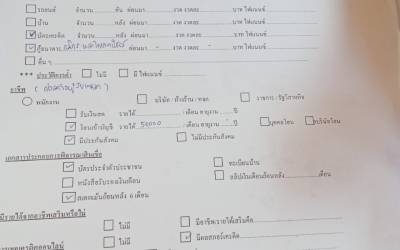 รถยนต์ จำนวน คัน ผ่อนมา งวด งวดละ บาท ไฟแนนซ์
บ้าน จำนวน หลัง ผ่อนมา งวด งวดละ บาท ไฟแนนซ์
บัตรเครดิต จำนวน ผ่อนมา งวด งวดละ บาท ไฟแนนซ์
กู้ธนาคาร ผ่อนมา - งวด งวดละ - บาท ไฟแนนซ์
อื่น ๆ
*** ประวัติการค้า ไม่มี มี ไฟแนนซ์
อาชีพ
พนักงาน บริษัท / ห้างร้าน / หจก. ราชการ / รัฐวิสาหกิจ
รับเงินสด รายได้ /เดือน อายุงาน ปี
โอนเข้าบัญชี รายได้ 50000 /เดือน อายุงาน ปี บุคคลโอน บริษัทโอน
มีประกันสังคม ไม่มีประกันสังคม
เอกสารประกอบการพิจารณาสินเชื่อ
บัตรประจำตัวประชาชน ทะเบียนบ้าน
หนังสือรับรองเงินเดือน สลิปเงินเดือนย้อนหลัง เดือน
สเตทเม้นย้อนหลัง 6 เดือน
มีรายได้จากอาชีพเสริมหรือไม่
ไม่มี มีอาชีพ/รายได้เสริมคือ
ไม่มี